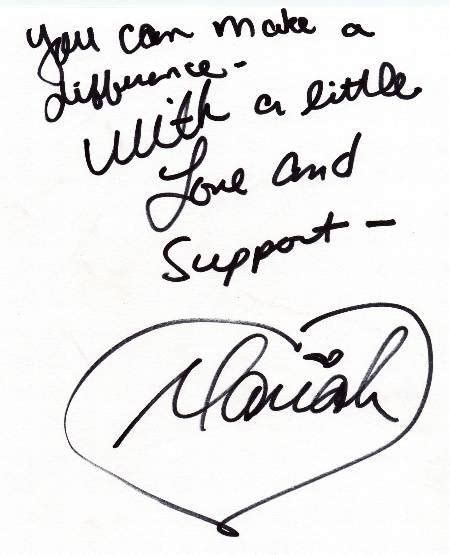 You can make a
difference-
With a little
Love and
Support -
Mariah